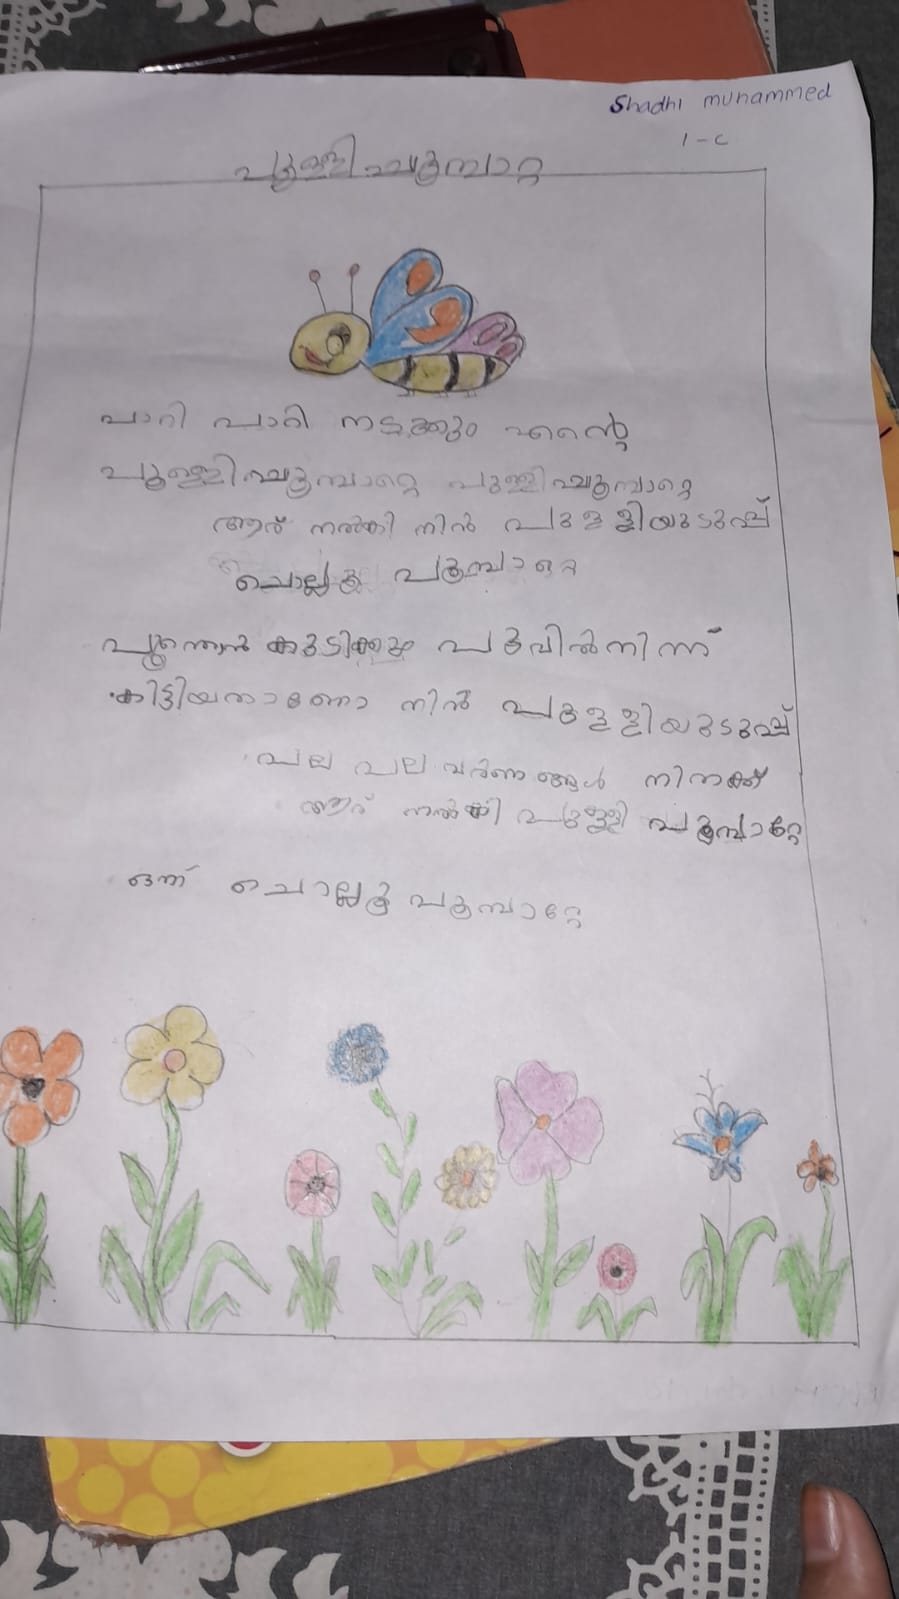 Shadhi muhammed
1-C
പുള്ളിപ്പൂമ്പാറ്റ
പാറി പാറി നടക്കും എന്റെ
പുള്ളിപ്പൂമ്പാറ്റെ പുള്ളിപ്പൂമ്പാറ്റെ
ആര് നൽകി നിൻ പുള്ളിയുടുപ്പ്
ചൊല്ലൂ പൂമ്പാറ്റെ
പൂന്തേൻ കുടിക്കും പൂവിൽനിന്ന്
കിട്ടിയതാണോ നിൻ പുള്ളിയുടുപ്പ്
പല പല വർണങ്ങൾ നിനക്ക്
ആര് നൽകി പുള്ളി പൂമ്പാറ്റേ
ഒന്ന് ചൊല്ലൂ പൂമ്പാറ്റേ